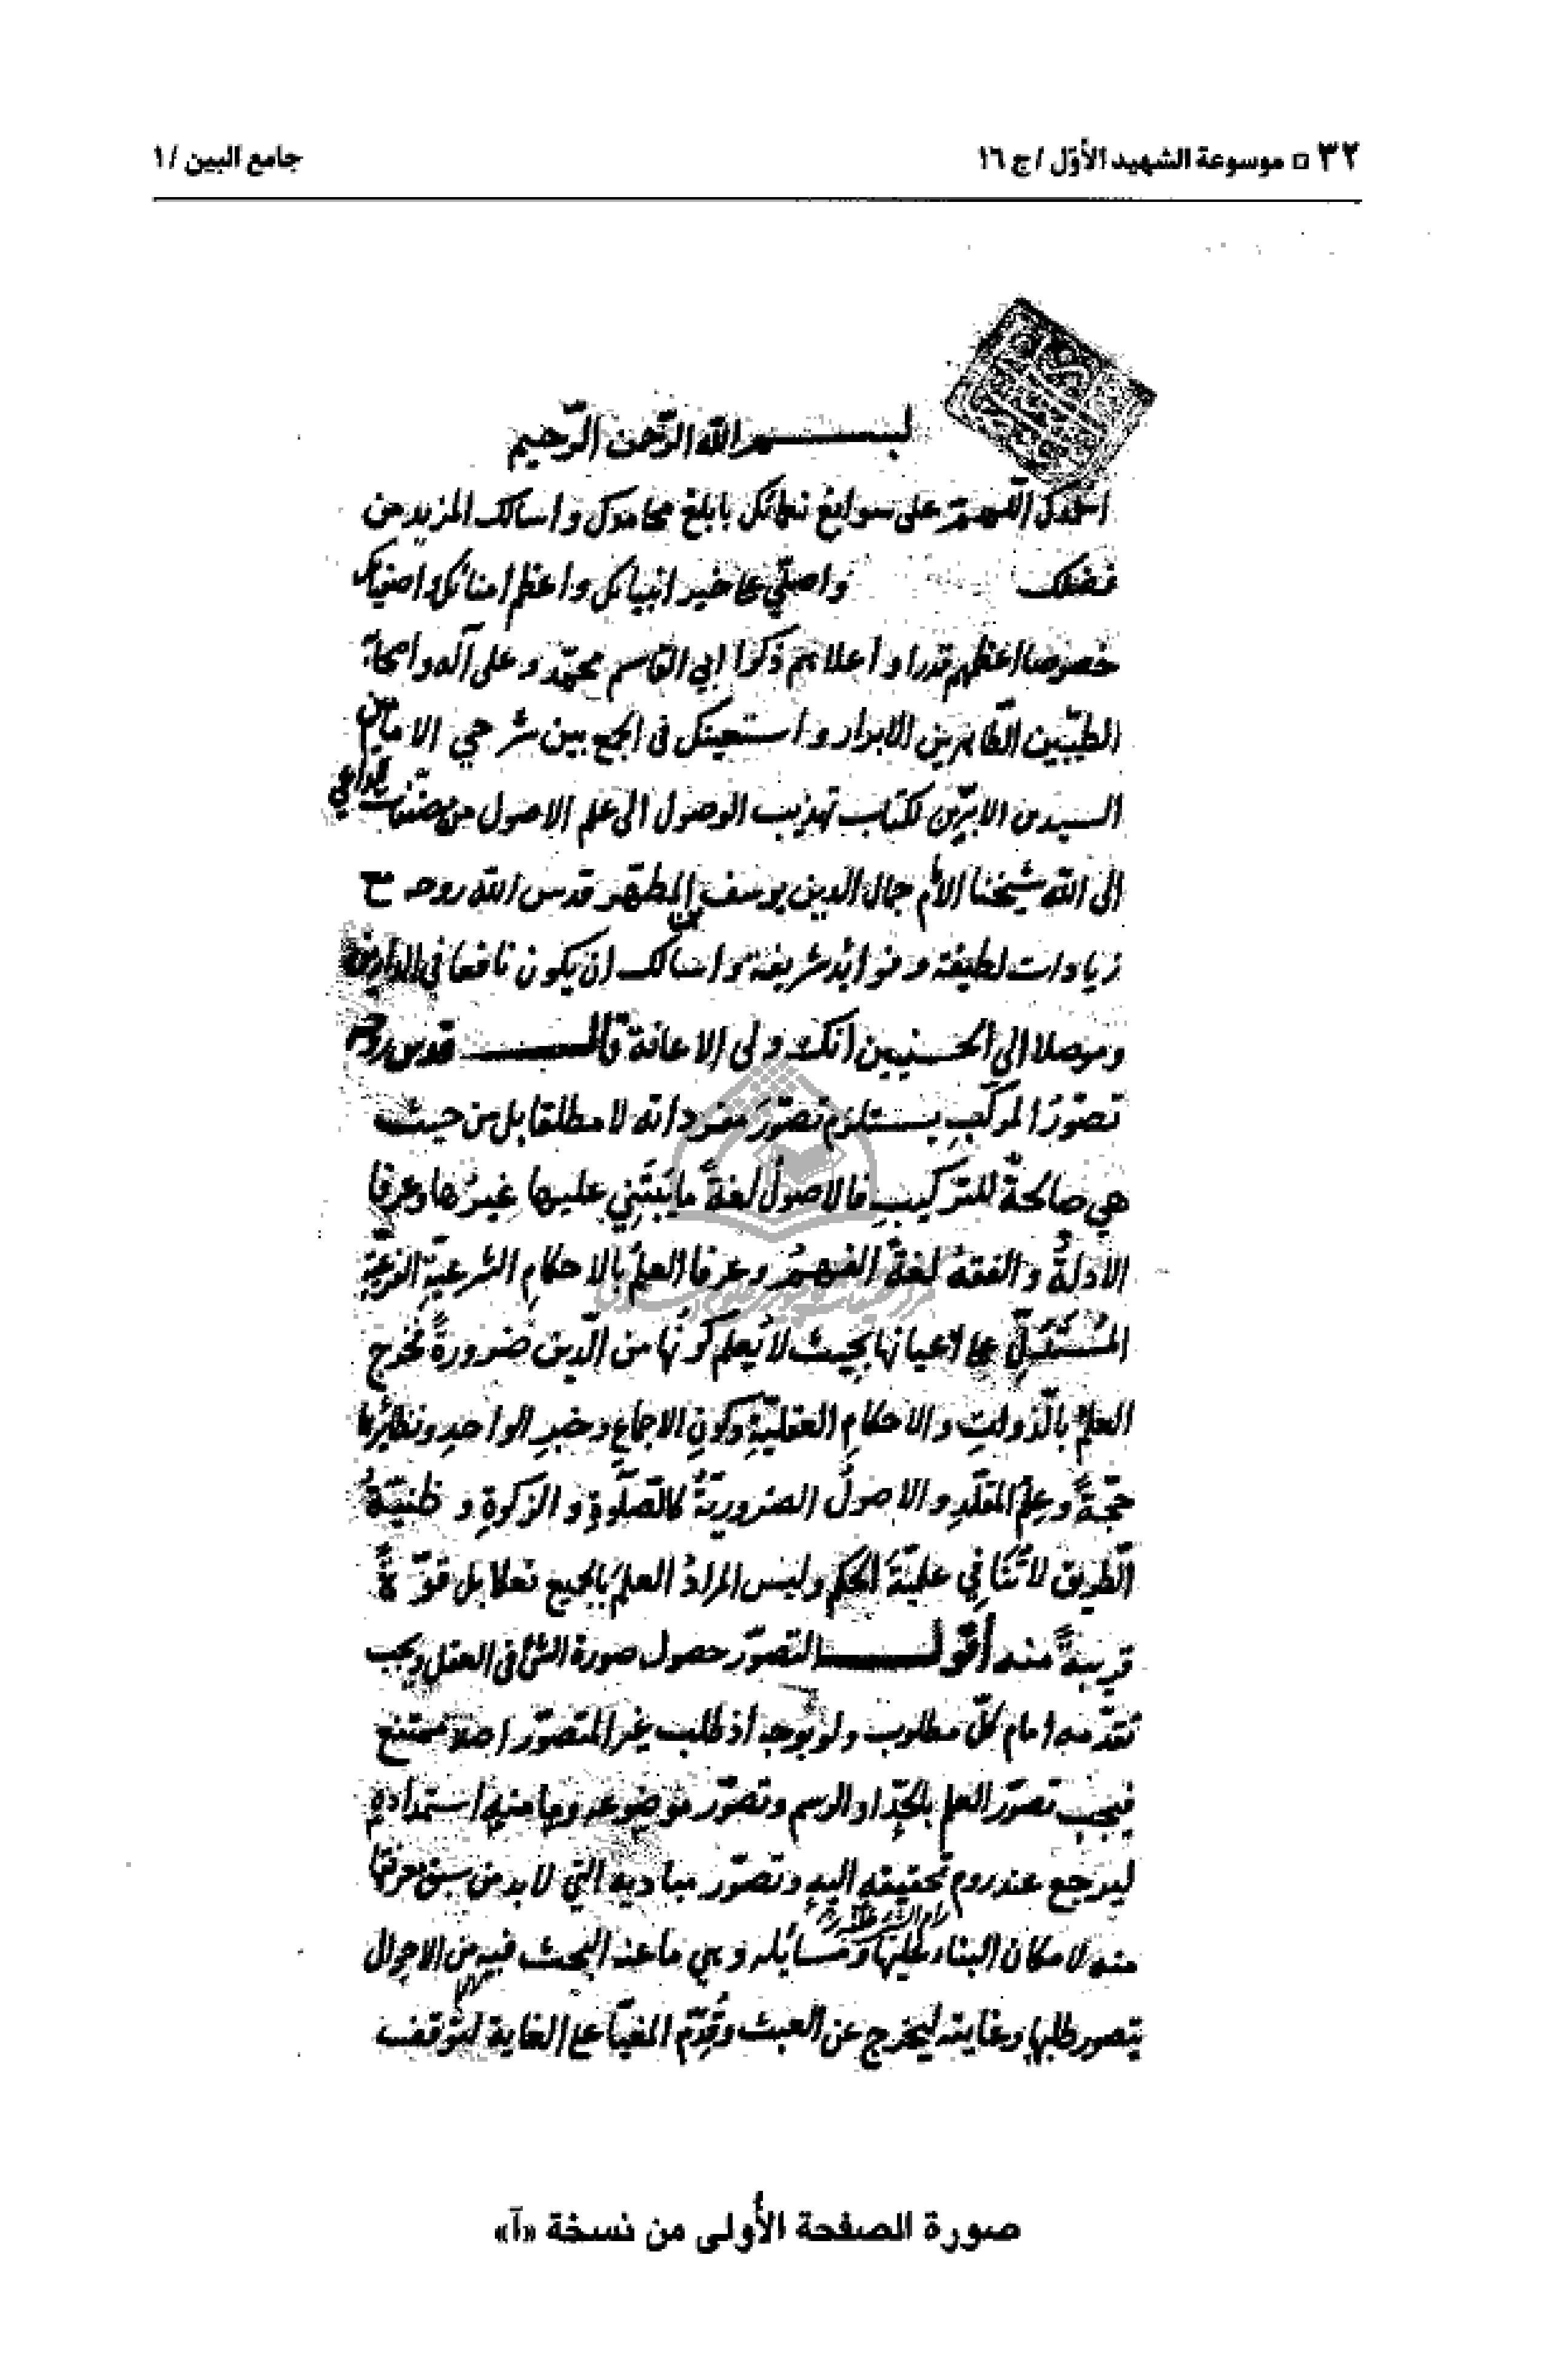 ٣٢ □ موسوعة الشهيد الأوّل / ج ١٦
جامع البين / ١
بسم الله الرّحمن الرّحيم
احمدك اللّهمّ على سوابغ نعمائك بابلغ محامدك واسالك المزيد من
فضلك واصلّي على خير انبيائك واعظم امنائك واصفيائك
خصوصا اعظمهم قدرا واعلاهم ذكرا ابي القاسم محمّد وعلى آله واصحابه
الطيّبين الطّاهرين الابرار واستعينك فى الجمع بين شرحي الامامين
السيدين الابرّين لكتاب تهذيب الوصول الى علم الاصول من مصنّفات الداعي
الى الله شيخنا الامام جمال الدين يوسف بن المطهّر قدس الله روحه مع
زيادات لطيفة وفوائد شريفة واسالك ان يكون نافعا في الدارين
وموصلا الى الحسنيين انك ولى الاعانة قال قدس روحه
تصوّرَ المركّبِ يستلزم تصوّرَ مفرداته لا مطلقا بل من حيث
هي صالحةٌ للتركيبِ فالاصولُ لغةً ما يَبْتَنِي عليها غيرُها وعرفا
الادلةُ والفقهُ لغةً الفهمُ وعرفا العلمُ بالاحكامِ الشرعيّةِ الفرعيّةِ
المُسْتَدَلِّ على اعيانها بحيث لا يُعلم كونُها من الدّين ضرورةً فخرج
العلمُ بالذّواتِ والاحكامِ العقليّةِ وكونِ الاجماعِ وخبرِ الواحدِ ونظائرِها
حجّةً وعِلمُ المقلّدِ والاصولُ الضروريّةُ كالصّلوةِ والزكوةِ وظنيّةُ
الطّريق لا تُنَافِي علميّةَ الحكم وليس المرادُ العلمَ بالجميع فعلا بل قوّةً
قريبةً منه أقول التصوّر حصول صورة الشئ فى العقل ويجب
تقدّمه امام كلّ مطلوب ولو بوجه اذ طلب غير المتصوّر اصلا ممتنع
فيجب تصوّر العلم بالحدّ او الرسم وتصوّر موضوعه وما منه استمداده
ليرجع عند روم تحقيقه اليه وتصوّر مباديه التي لابد من سبق معرفتها
منه لامكان البناء عليها ومسائله وهي ما عنه البحث فيه من الاحوال
يتصور طلبها وغايته ليخرج عن العبث وقُدّم المغيّا على الغاية لتوقف
صورة الصفحة الأُولى من نسخة «آ»